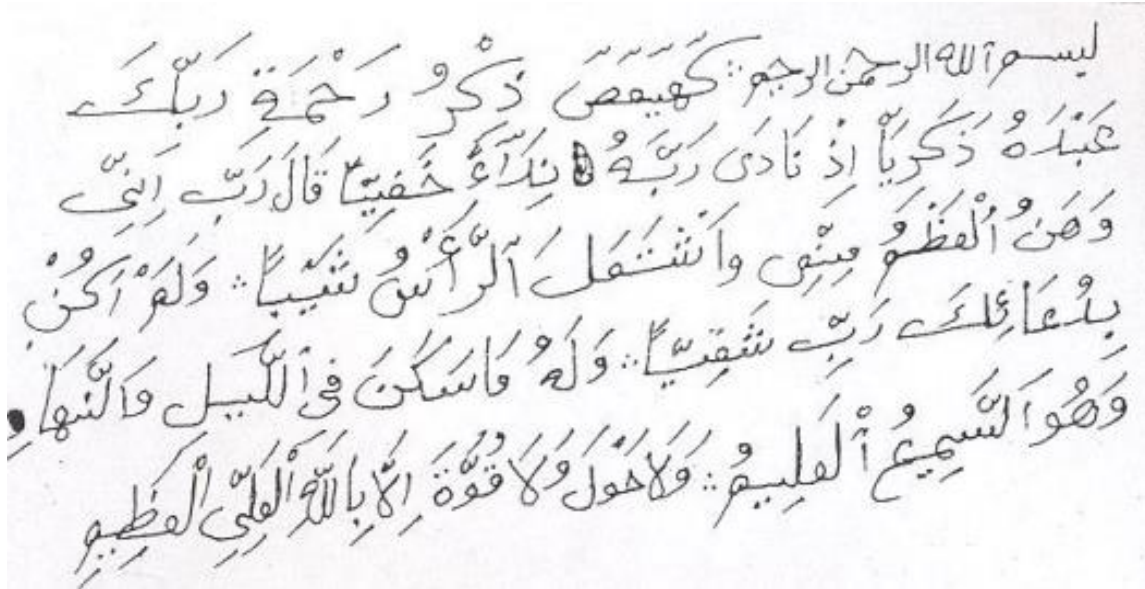 بسم الله الرحمن الرحيم كهيعص ذِكْرُ رَحْمَةِ رَبِّكَ
عَبْدَهُ زَكَرِيَّا إِذْ نَادَى رَبَّهُ نِدَآءً خَفِيًّا قَالَ رَبِّ اِنِّى
وَهَنَ ٱلْعَظْمُ مِنِّى وَاشْتَعَلَ ٱلرَّأْسُ شَيْبًا ؞ وَلَمْ اَكُنْ
بِدُعَائِكَ رَبِّ شَقِيًّا ؞ وَلَهُ مَا سَكَنَ فِى ٱللَّيْلِ وَالنَّهَارِ
وَهُوَ السَّمِيعُ ٱلْعَلِيمُ ؞ وَلَا حَوْلَ وَلَا قُوَّةَ اِلَّا بِاللَّهِ ٱلْعَلِىِّ الْعَظِيمِ